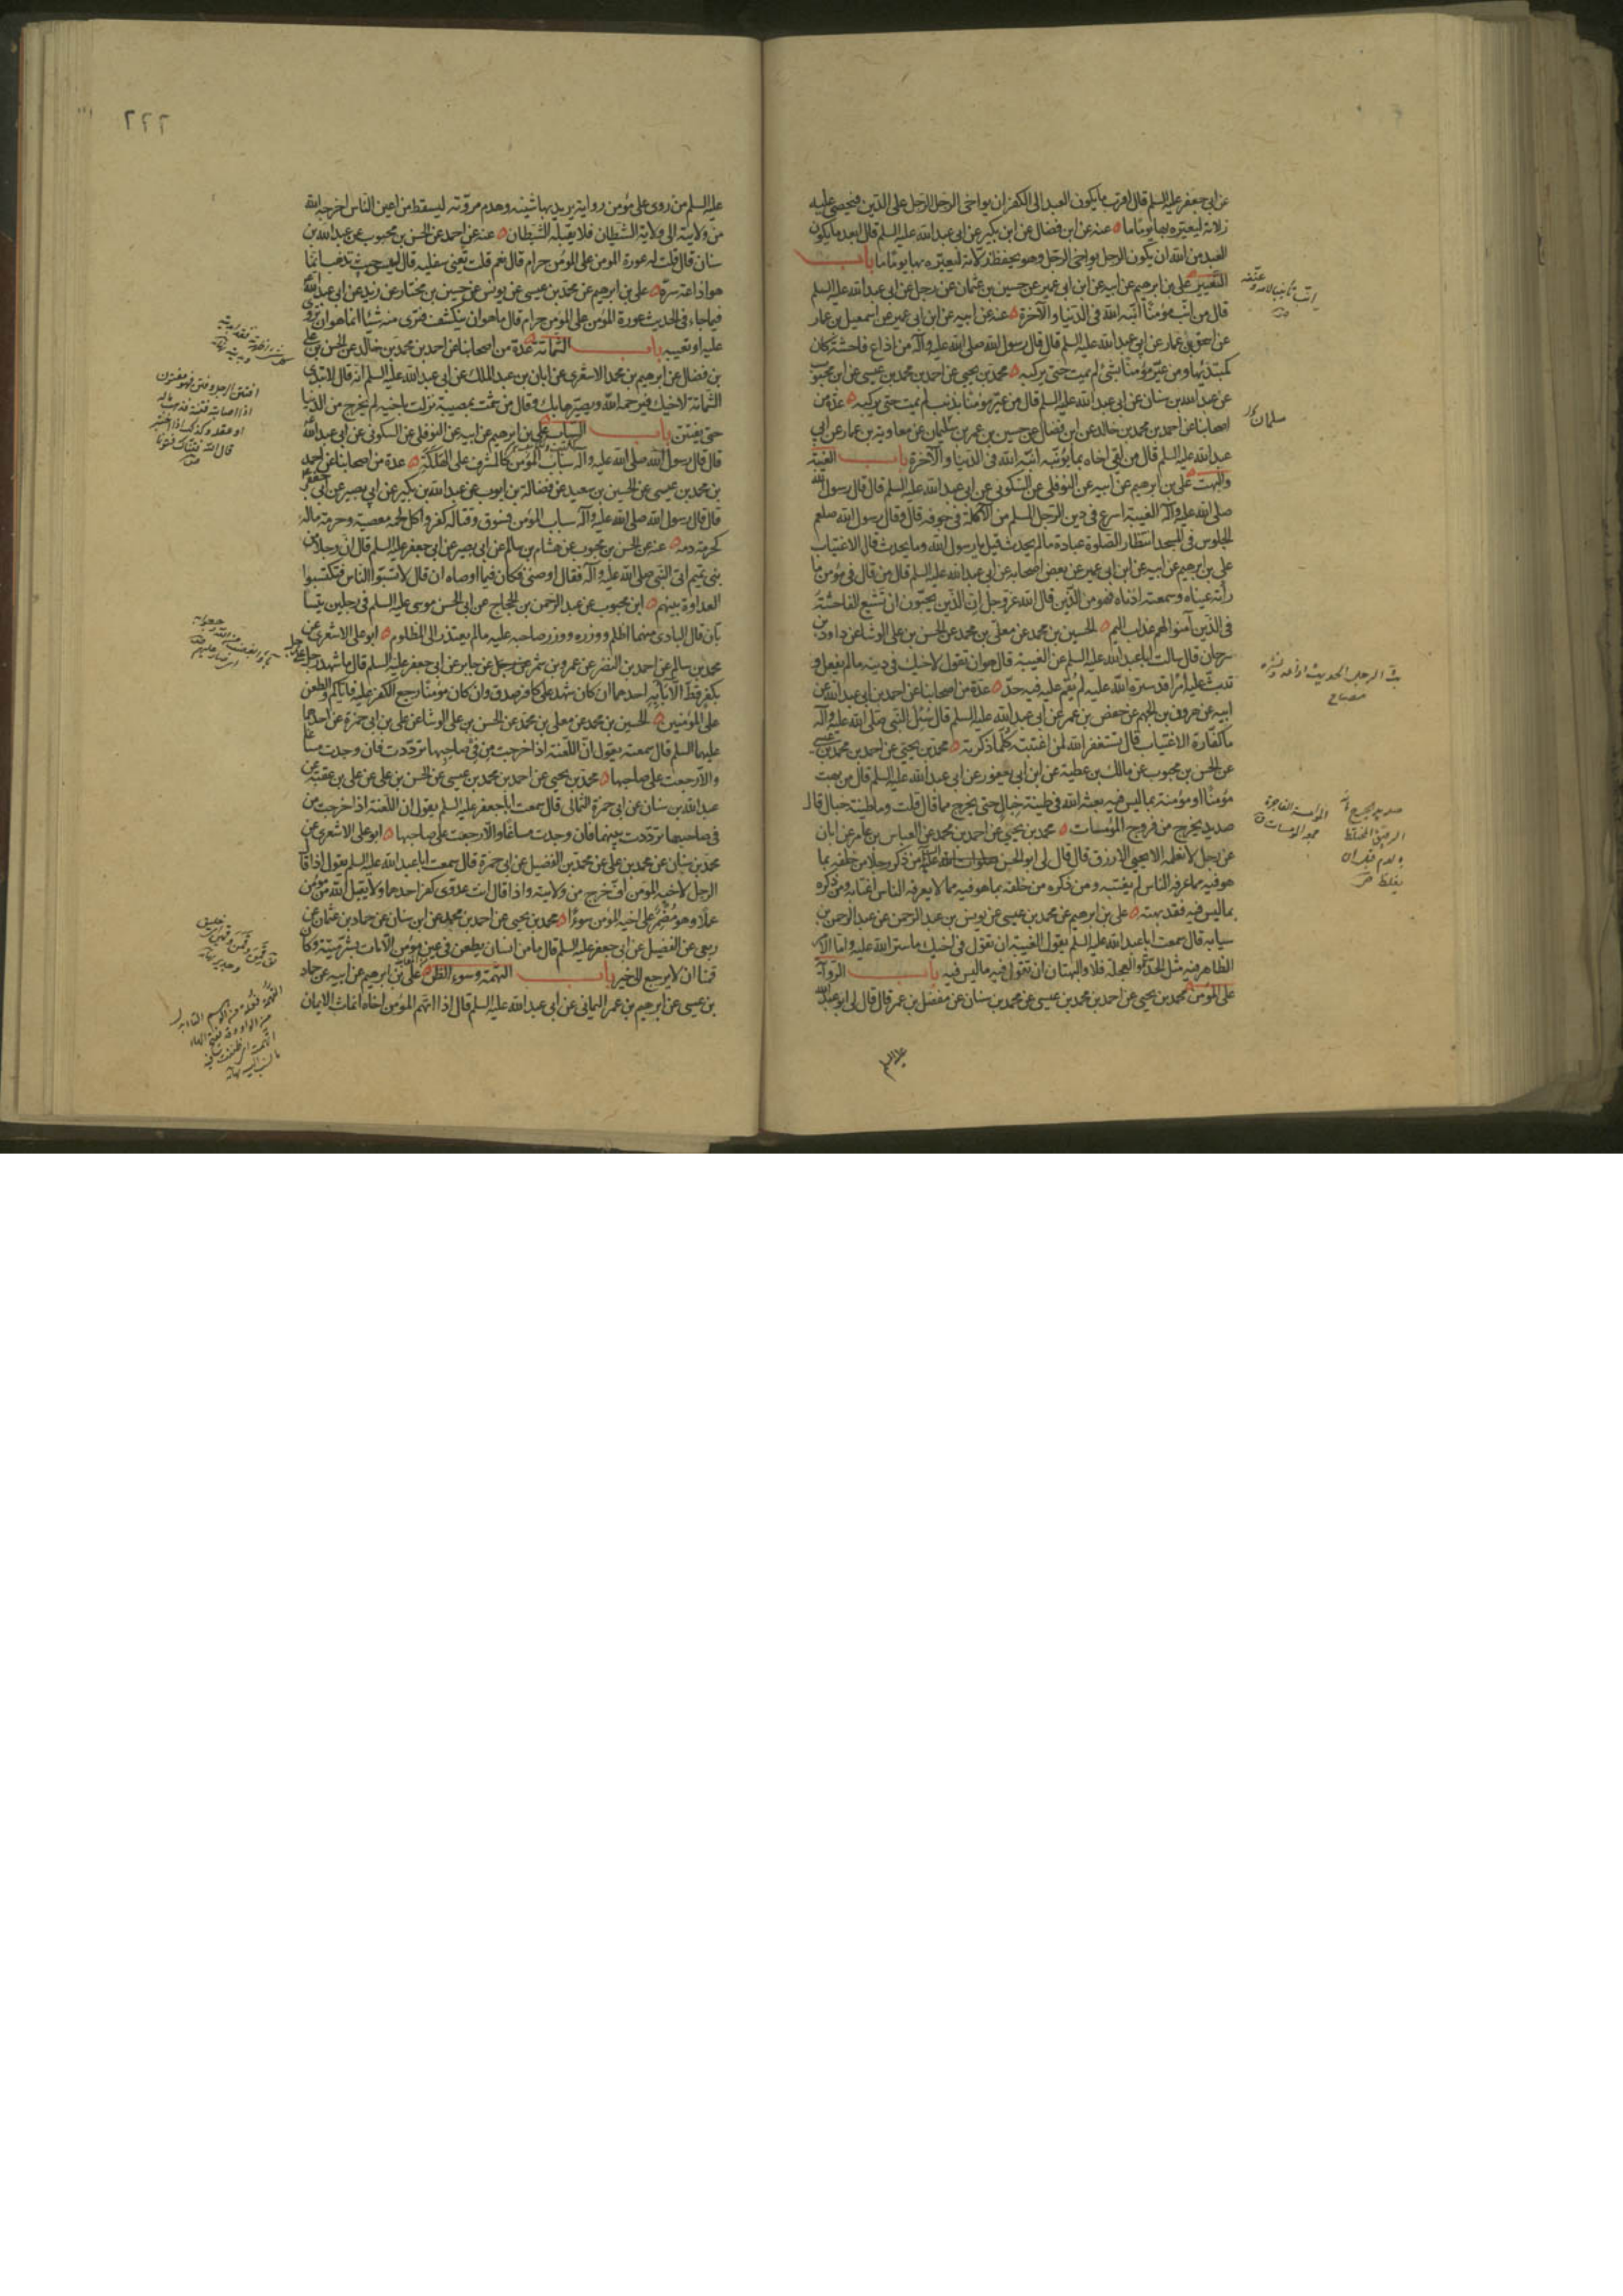 عن ابى جعفر عليه السلم قال اقرب ما يكون العبد الى الكفر ان يواخى الرجل الرجل على الدين فيحصى عليه
زلاته ليعيره بها يوما ما عنه عن ابن فضال عن ابن بكير عن ابى عبد الله عليه السلم قال ابعد ما يكون
العبد من الله ان يكون الرجل يواخى الرجل وهو يحفظ زلاته ليعيره بها يوما ما باب
التعيير على بن ابرهيم عن ابيه عن ابن ابى عمير عن حسين بن عثمان عن رجل عن ابى عبد الله عليه السلم
قال من انب مؤمنا انبه الله فى الدنيا والآخرة عنه عن ابيه عن ابن ابى عمير عن اسمعيل بن عمار
عن اسحق بن عمار عن ابى عبد الله عليه السلم قال قال رسول الله صلى الله عليه وآله من اذاع فاحشة كان
كمبتدئها ومن عير مؤمنا بشئ لم يمت حتى يركبه محمد بن يحيى عن احمد بن محمد بن عيسى عن ابن محبوب
عن عبد الله بن سنان عن ابى عبد الله عليه السلم قال من عير مؤمنا بذنب لم يمت حتى يركبه عدة من
اصحابنا عن احمد بن محمد بن خالد عن ابن فضال عن حسين بن عمر بن سليمان عن معاوية بن عمار عن ابى
عبد الله عليه السلم قال من لقى اخاه بما يؤنبه انبه الله فى الدنيا والآخرة باب الغيبة
والبهت على بن ابرهيم عن ابيه عن النوفلى عن السكونى عن ابى عبد الله عليه السلم قال قال رسول الله
صلى الله عليه وآله الغيبة اسرع فى دين الرجل المسلم من الآكلة فى جوفه قال وقال رسول الله صلعم
الجلوس فى المسجد انتظار الصلوة عبادة ما لم يحدث قيل يا رسول الله وما يحدث قال الاغتياب
على بن ابرهيم عن ابيه عن ابن ابى عمير عن بعض اصحابه عن ابى عبد الله عليه السلم قال من قال فى مؤمن ما
رأته عيناه وسمعته اذناه فهو من الذين قال الله عز وجل ان الذين يحبون ان تشيع الفاحشة
فى الذين آمنوا لهم عذاب اليم الحسين بن محمد عن معلى بن محمد عن الحسن بن على الوشا عن داود بن
سرحان قال سالت ابا عبد الله عليه السلم عن الغيبة قال هو ان تقول لاخيك فى دينه ما لم يفعل و
تبث عليه امرا قد ستره الله عليه لم يقم عليه فيه حد عدة من اصحابنا عن احمد بن ابى عبد الله عن
ابيه عن هرون بن الجهم عن حفص بن عمر عن ابى عبد الله عليه السلم قال سئل النبى صلى الله عليه وآله
ما كفارة الاغتياب قال تستغفر الله لمن اغتبته كلما ذكرته محمد بن يحيى عن احمد بن محمد بن عيسى
عن الحسن بن محبوب عن مالك بن عطية عن ابن ابى يعفور عن ابى عبد الله عليه السلم قال من بهت
مؤمنا او مؤمنة بما ليس فيه بعثه الله فى طينة خبال حتى يخرج مما قال قلت وما طينة خبال قال
صديد يخرج من فروج المومسات محمد بن يحيى عن احمد بن محمد عن العباس بن عامر عن ابان
عن رجل لا نعلمه الا يحيى الازرق قال قال لى ابو الحسن صلوات الله عليه من ذكر رجلا من خلفه بما
هو فيه مما عرفه الناس لم يغتبه ومن ذكره من خلفه بما هو فيه مما لا يعرفه الناس اغتابه ومن ذكره
بما ليس فيه فقد بهته على بن ابرهيم عن محمد بن عيسى عن يونس بن عبد الرحمن عن عبد الرحمن بن
سيابه قال سمعت ابا عبد الله عليه السلم يقول الغيبة ان تقول فى اخيك ما ستر الله عليه واما الامر
الظاهر فيه مثل الحدة والعجلة فلا والبهتان ان تقول فيه ما ليس فيه باب الرواية
على المؤمن محمد بن يحيى عن احمد بن محمد بن عيسى عن محمد بن سنان عن مفضل بن عمر قال قال لى ابو عبد الله
عليه السلم
سلمان
بث الرجل الحديث اذاعه ونشره
مصباح
المومسة الفاجرة
٢٢٢
عليه السلم من روى على مؤمن رواية يريد بها شينه وهدم مروته ليسقط من اعين الناس اخرجه الله
من ولايته الى ولاية الشيطان فلا يقبله الشيطان عنه عن احمد عن الحسن بن محبوب عن عبد الله بن
سنان قال قلت له عورة المومن على المؤمن حرام قال نعم قلت تعنى سفليه قال ليس حيث تذهب انما
هو اذاعة سره على بن ابرهيم عن محمد بن عيسى عن يونس عن حسين بن مختار عن زيد عن ابى عبد الله
فيما جاء فى الحديث عورة المؤمن على المؤمن حرام قال ما هو ان ينكشف فترى منه شيئا انما هو ان تروى
عليه او تعيبه باب الشماتة عدة من اصحابنا عن احمد بن محمد بن خالد عن الحسن بن على
بن فضال عن ابرهيم بن محمد الاشعرى عن ابان بن عبد الملك عن ابى عبد الله عليه السلم انه قال لا تبدى
الشماتة لاخيك فيرحمه الله ويصيرها بك وقال من شمت بمصيبة نزلت باخيه لم يخرج من الدنيا
حتى يفتتن باب السباب على بن ابرهيم عن ابيه عن النوفلى عن السكونى عن ابى عبد الله
قال قال رسول الله صلى الله عليه وآله سباب المؤمن كالمشرف على الهلكة عدة من اصحابنا عن احمد
بن محمد بن عيسى عن الحسين بن سعيد عن فضالة بن ايوب عن عبد الله بن بكير عن ابى بصير عن ابى جعفر
قال قال رسول الله صلى الله عليه وآله سباب المؤمن فسوق وقتاله كفر واكل لحمه معصية وحرمة ماله
كحرمة دمه عنه عن الحسن بن محبوب عن هشام بن سالم عن ابى بصير عن ابى جعفر عليه السلم قال ان رجلا من
بنى تميم اتى النبى صلى الله عليه وآله فقال اوصنى فكان فيما اوصاه ان قال لا تسبوا الناس فتكتسبوا
العداوة بينهم ابن محبوب عن عبد الرحمن بن الحجاج عن ابى الحسن موسى عليه السلم فى رجلين يتسا
بان قال البادى منهما اظلم ووزره ووزر صاحبه عليه ما لم يعتذر الى المظلوم ابو على الاشعرى عن
محمد بن سالم عن احمد بن النضر عن عمرو بن شمر عن جابر عن ابى جعفر عليه السلم قال ما شهد رجل على رجل
بكفر قط الا باء به احدهما ان كان شهد على كافر صدق وان كان مؤمنا رجع الكفر عليه فاياكم والطعن
على المؤمنين الحسين بن محمد عن معلى بن محمد عن الحسن بن على الوشا عن على بن ابى حمزة عن احدهما
عليهما السلم قال سمعته يقول ان اللعنة اذا خرجت من فى صاحبها ترددت فان وجدت مساغا
والا رجعت على صاحبها محمد بن يحيى عن احمد بن محمد بن عيسى عن الحسن بن على عن على بن عقبة عن
عبد الله بن سنان عن ابى حمزة الثمالى قال سمعت ابا جعفر عليه السلم يقول ان اللعنة اذا خرجت من
فى صاحبها ترددت بينهما فان وجدت مساغا والا رجعت على صاحبها ابو على الاشعرى عن
محمد بن سنان عن محمد بن على عن محمد بن الفضيل عن ابى حمزة قال سمعت ابا عبد الله عليه السلم يقول اذا قا
الرجل لاخيه المؤمن اف خرج من ولايته واذا قال انت عدوى كفر احدهما ولا يقبل الله من مؤمن
عملا وهو مضمر على اخيه المؤمن سوءا محمد بن يحيى عن احمد بن محمد عن ابن سنان عن حماد بن عثمان عن
ربعى عن الفضيل عن ابى جعفر عليه السلم قال ما من انسان يطعن فى عين مؤمن الا مات بشر ميتة وكا
قمنا ان لا يرجع الى خير باب التهمة وسوء الظن على بن ابرهيم عن ابيه عن حماد
بن عيسى عن ابرهيم بن عمر اليمانى عن ابى عبد الله عليه السلم قال اذا اتهم المؤمن اخاه انماث الايمان
افتتن الرجل وفتن فهو مفتون
اذا اصابته فتنة فذهب ماله
او عقله وكذلك اذا اختبر
قال الله وفتناك فتونا